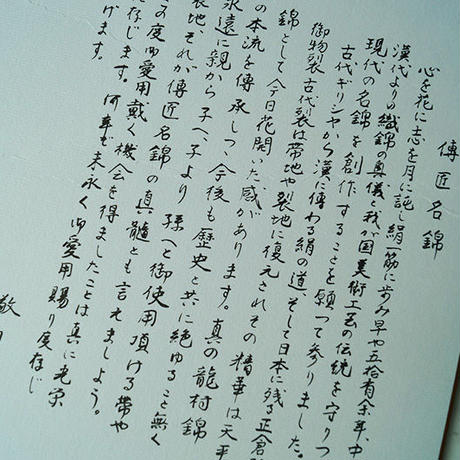 傳匠名錦
心を花に志を月に託し絹一筋に歩み早や五拾有余年、中
漢代よりの織錦の奥儀と我が国美術工芸の伝統を守りつ
現代の名錦を創作することを願って参りました。
古代ギリシャから漢に伝わる絹の道、そして日本に残る正倉
御物裂古代裂は帯地や裂地に復元されその精華は天平
錦として今日花開いた感があります。真の龍村錦
の本流を傳承しつゝ今後も歴史と共に絶ゆること無く
永遠に親から子へ、子より孫へと御使用頂ける帯や
裂地、それが傳匠名錦の真髄とも言えましょう。
の度御愛用戴く機会を得ましたことは真に光栄
に存じます。何卒末永く御愛用賜り度存じ
げます。
敬